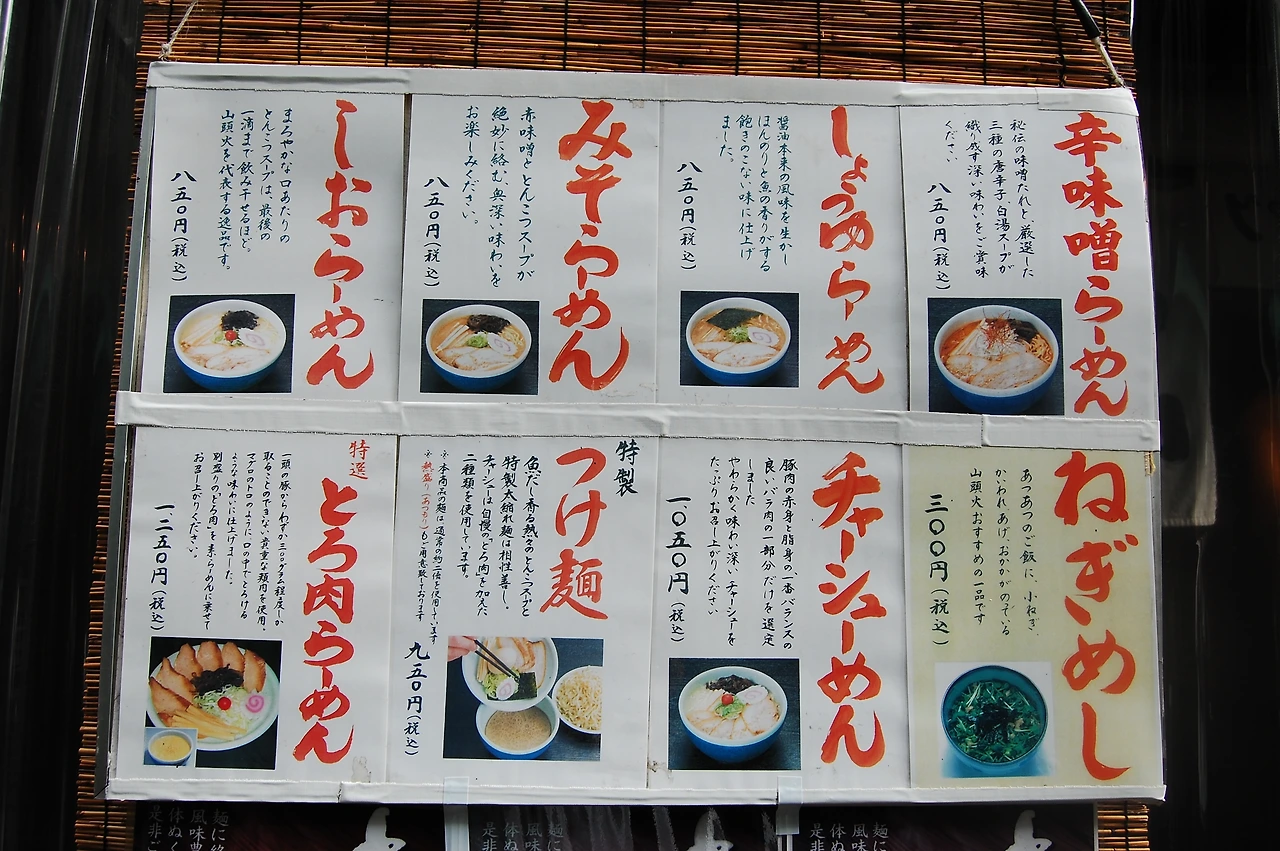 辛味噌らーめん
秘伝の味噌だれと、厳選した
三種の唐辛子、白湯スープが
織り成す深い味わいをご賞味
ください
八五〇円(税込)
しょうゆらーめん
醤油本来の風味を生かし
ほんのりと魚の香りがする
飽きのこない味に仕上げ
ました。
八五〇円(税込)
みそらーめん
赤味噌ととんこつスープが
絶妙に絡む、奥深い味わいを
お楽しみください。
八五〇円(税込)
しおらーめん
まろやかな口あたりの
とんこつスープは、最後の
一滴まで飲み干せるほど。
山頭火を代表する逸品です。
八五〇円(税込)
ねぎめし
あつあつのご飯に、小ねぎ、
かいわれ、あげ、おかかがのでいる
山頭火おすすめの一品です
三〇〇円(税込)
チャーシューめん
豚肉の赤身と脂身の一番バランスの
良いバラ肉の一部分だけを選定
しました
やわらかく味わい深いチャーシューを
たっぷりお召し上がりください
一、〇五〇円(税込)
特製
つけ麺
魚だし香る熱々のとんこつスープと
特製太縮れ麺は相性善し。
チャーシューは自慢の「とろ肉」を加えた
二種類を使用しています。
※本商品の麺は通常の約二倍を使用しています
※熱盛り(あつもり)もご用意致しております
九五〇円(税込)
特選
とろ肉らーめん
一頭の豚からわずか三〇〇グラム程度しか
取ることのできない貴重な頬肉を使用、
マグロのトロのように口の中でとろける
ような味わいに仕上げました。
別盛りの「とろ肉」を素らーめんに乗せて
お召し上がりください。
一、二五〇円(税込)
麺に
風味
体ぬ
是非
麺に
風味
体ぬ
是非
麺に絡
風味豊
体ぬく
是非ご